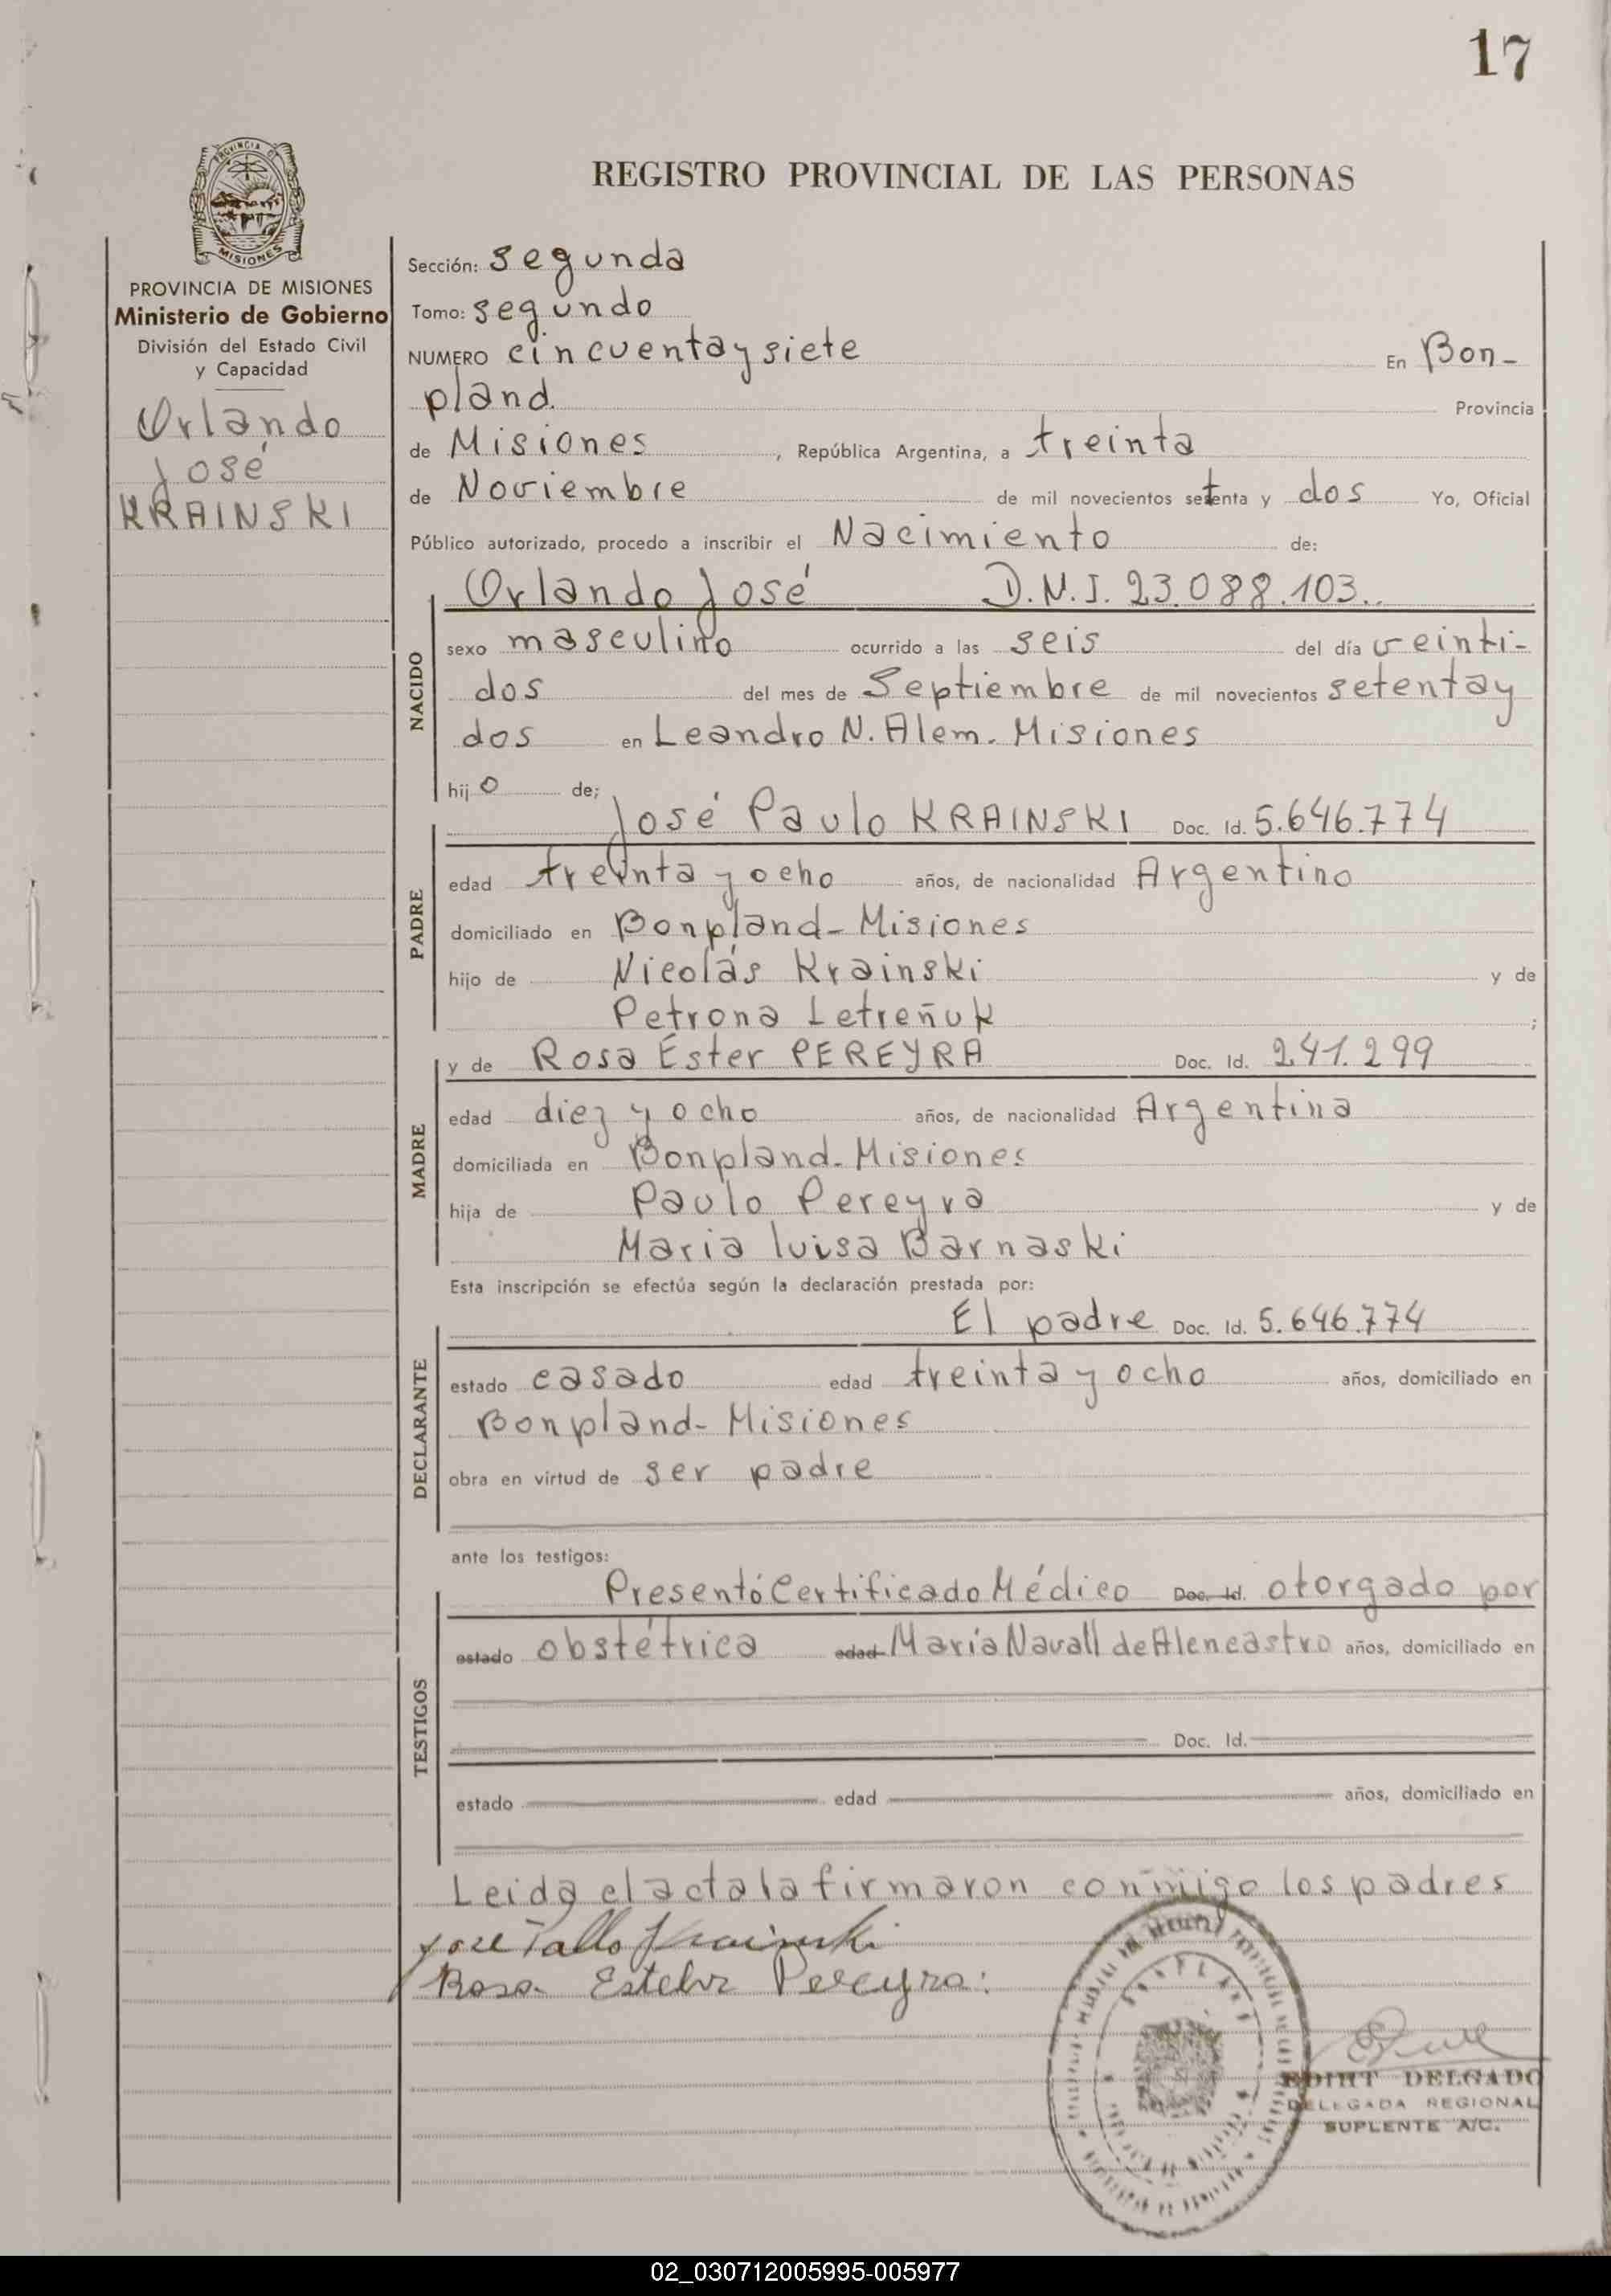 17
PROVINCIA DE
MISIONES
REGISTRO PROVINCIAL DE LAS PERSONAS
PROVINCIA DE MISIONES
Ministerio de Gobierno
División del Estado Civil
y Capacidad
Orlando
José
KRAINSKI
Sección: segunda
Tomo: segundo
NUMERO cincuentaysiete En Bon-
pland. Provincia
de Misiones, República Argentina, a treinta
de Noviembre de mil novecientos setenta y dos Yo, Oficial
Público autorizado, procedo a inscribir el Nacimiento de:
NACIDO
Orlando José D.N.I. 23.088.103..
sexo masculino ocurrido a las seis del día veinti-
dos del mes de Septiembre de mil novecientos setentay
dos en Leandro N. Alem. Misiones
hijo de;
PADRE
José Paulo KRAINSKI Doc. Id. 5.646.774
edad treinta y ocho años, de nacionalidad Argentino
domiciliado en Bonpland- Misiones
hijo de Nicolás Krainski y de
Petrona Letreñuk ;
MADRE
y de Rosa Ester PEREYRA Doc. Id. 241.299
edad diez y ocho años, de nacionalidad Argentina
domiciliada en Bonpland- Misiones
hija de Paulo Pereyra y de
Maria luisa Barnaski
Esta inscripción se efectúa según la declaración prestada por:
DECLARANTE
El padre Doc. Id. 5.646.774
estado casado edad treinta y ocho años, domiciliado en
Bonpland- Misiones
obra en virtud de ser padre
ante los testigos:
TESTIGOS
Presentó Certificado Médico Doc. Id. otorgado por
estado obstétrica edad María Navall de Alencastro años, domiciliado en
Doc. Id.
estado edad años, domiciliado en
Leida el acta la firmaron conmigo los padres
Jose Pallo Krainski
Rosa Ester Pereyra:
EDIHT DELGADO
DELEGADA REGIONAL
SUPLENTE A/C.
02_030712005995-005977